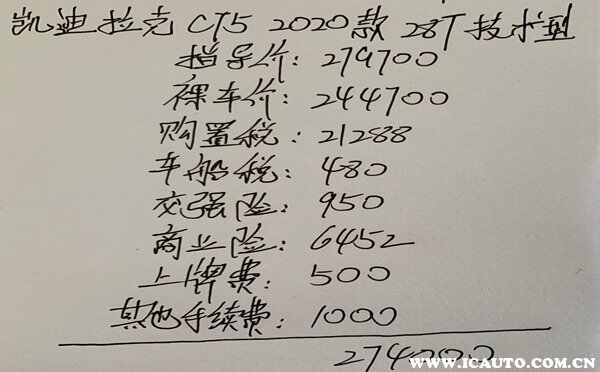 凯迪拉克 CT5 2020款 28T 技术型
指导价: 279700
裸车价: 244700
购置税: 21288
车船税: 480
交强险: 950
商业险: 6452
上牌费: 500
其他手续费: 1000
WWW.ICAUTO.COM.CN